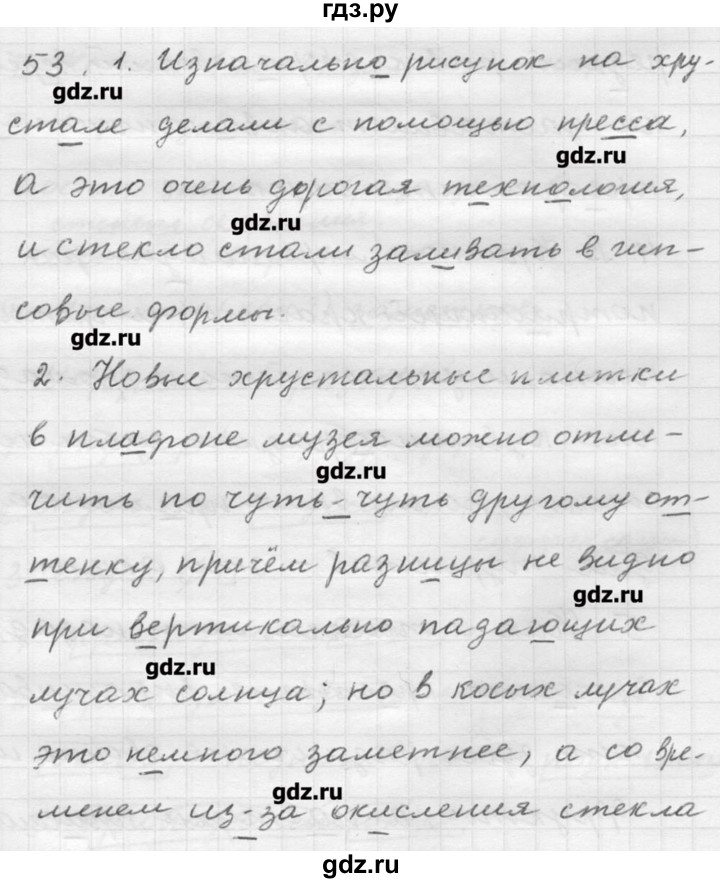 гдз.ру
53. 1. Изначально рисунок на хру-
gdz.ru
стале делали с помощью пресса,
gdz.ru
а это очень дорогая технология,
gdz.ru
и стекло стали заливать в гип-
совые формы.
gdz.ru
2. Новые хрустальные плитки
в плафоне музея можно отли-
gdz.ru
чить по чуть-чуть другому от-
тенку, причём разницы не видно
gdz.ru
при вертикально падающих
gdz.ru
лучах солнца; но в косых лучах
это немного заметнее, а со вре-
gdz.ru
менем из-за окисления стекла
gdz.ru